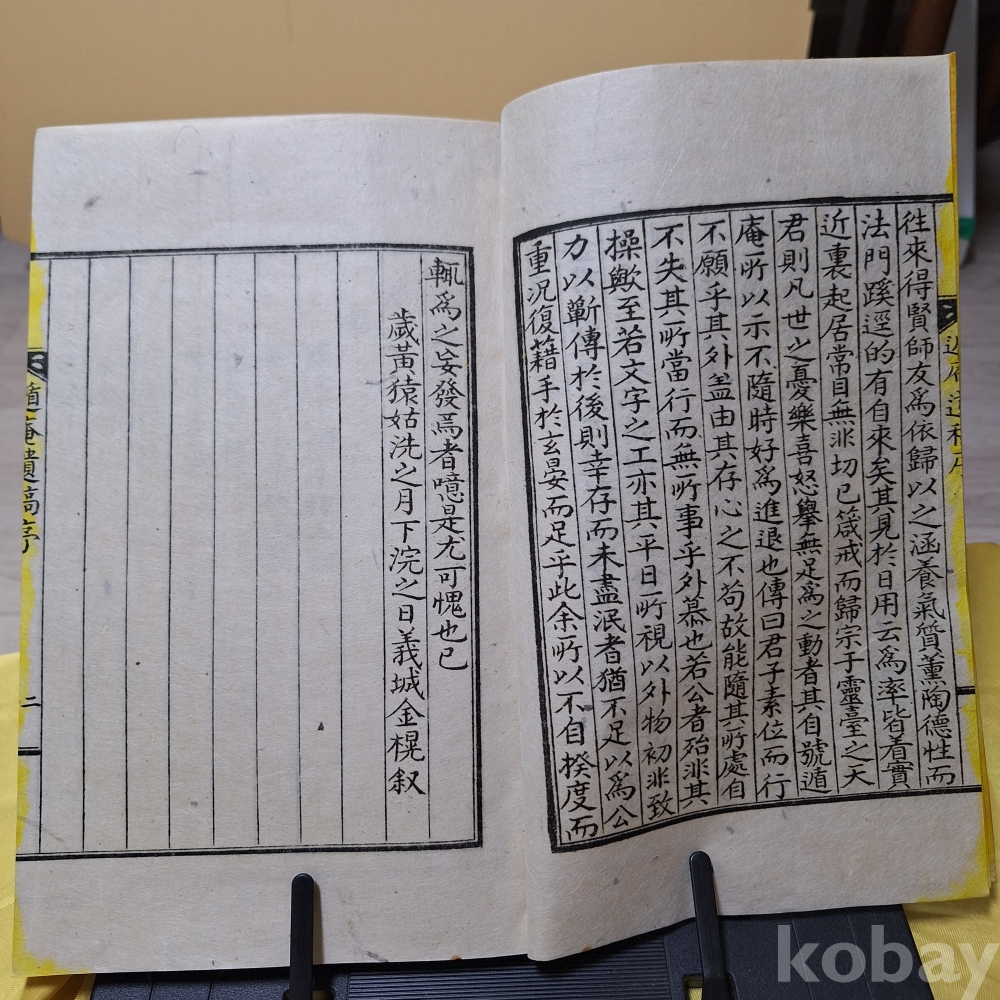 往來得賢師友爲依歸以之涵養氣質薰陶德性而
法門蹊逕的有自來矣其見於日用云爲率皆着實
近裏起居常目無非切己箴戒而歸宗子靈臺之天
君則凡世之憂樂喜怒擧無足爲之動者其自號遁
庵所以示不隨時好爲進退也傳曰君子素位而行
不願乎其外盖由其存心之不苟故能隨其所處自
不失其所當行而無所事乎外慕也若公者殆非其
操歟至若文字之工亦其平日所視以外物初非致
力以蘄傳於後則幸存而未盡泯者猶不足以爲公
重況復藉手於玄晏而足乎此余所以不自揆度而
輒爲之妄發焉者噫是尤可愧也已
歲黃猿姑洗之月下浣之日義城金榥叙
遁庵遺稿序
二
kobay